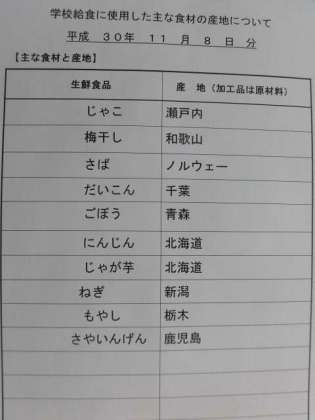 学校給食に使用した主な食材の産地について
平成 30年 11 月 8 日 分
【主な食材と産地】
生鮮食品 産 地（加工品は原材料）
じゃこ 瀬戸内
梅干し 和歌山
さば ノルウェー
だいこん 千葉
ごぼう 青森
にんじん 北海道
じゃが芋 北海道
ねぎ 新潟
もやし 栃木
さやいんげん 鹿児島